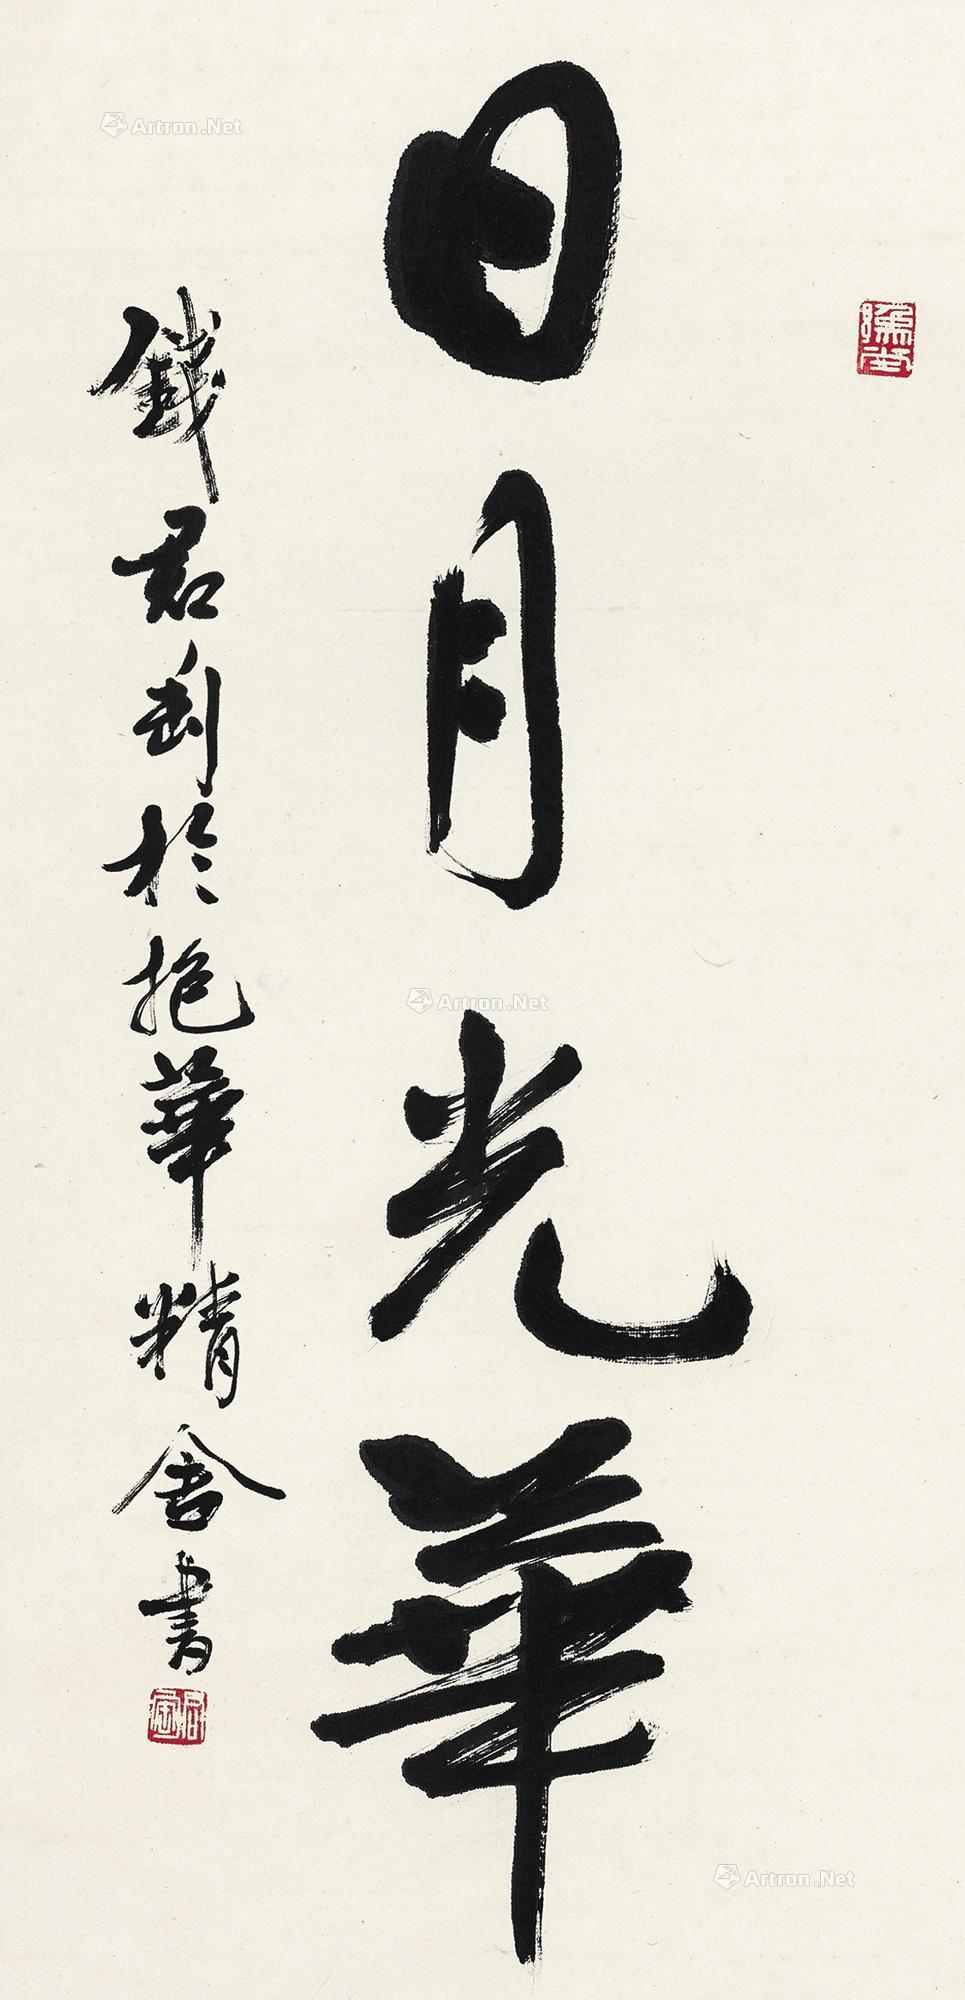 日月光華
錢君匋於抱華精舍書
Artron.Net
Artron.Net
Artron.Net